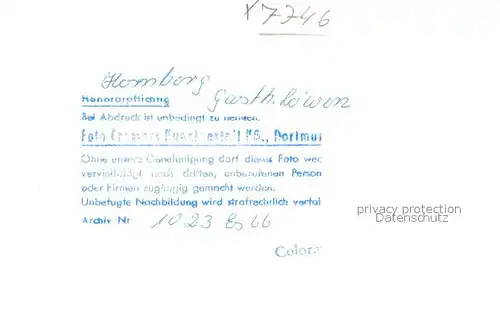 x7746
Homberg
Gasth. Löwen
Honorarpflichtig
Bei Abdruck ist unbedingt zu nennen:
Foto Cramers Kunstanstalt KG., Dortmun
Ohne unsere Genehmigung darf dieses Foto wed
vervielfältigt noch dritten, unberufenen Person
oder Firmen zugängig gemacht werden.
Unbefugte Nachbildung wird strafrechtlich verfol
Archiv Nr 1023 Es 66
privacy protection
Datenschutz
Colora